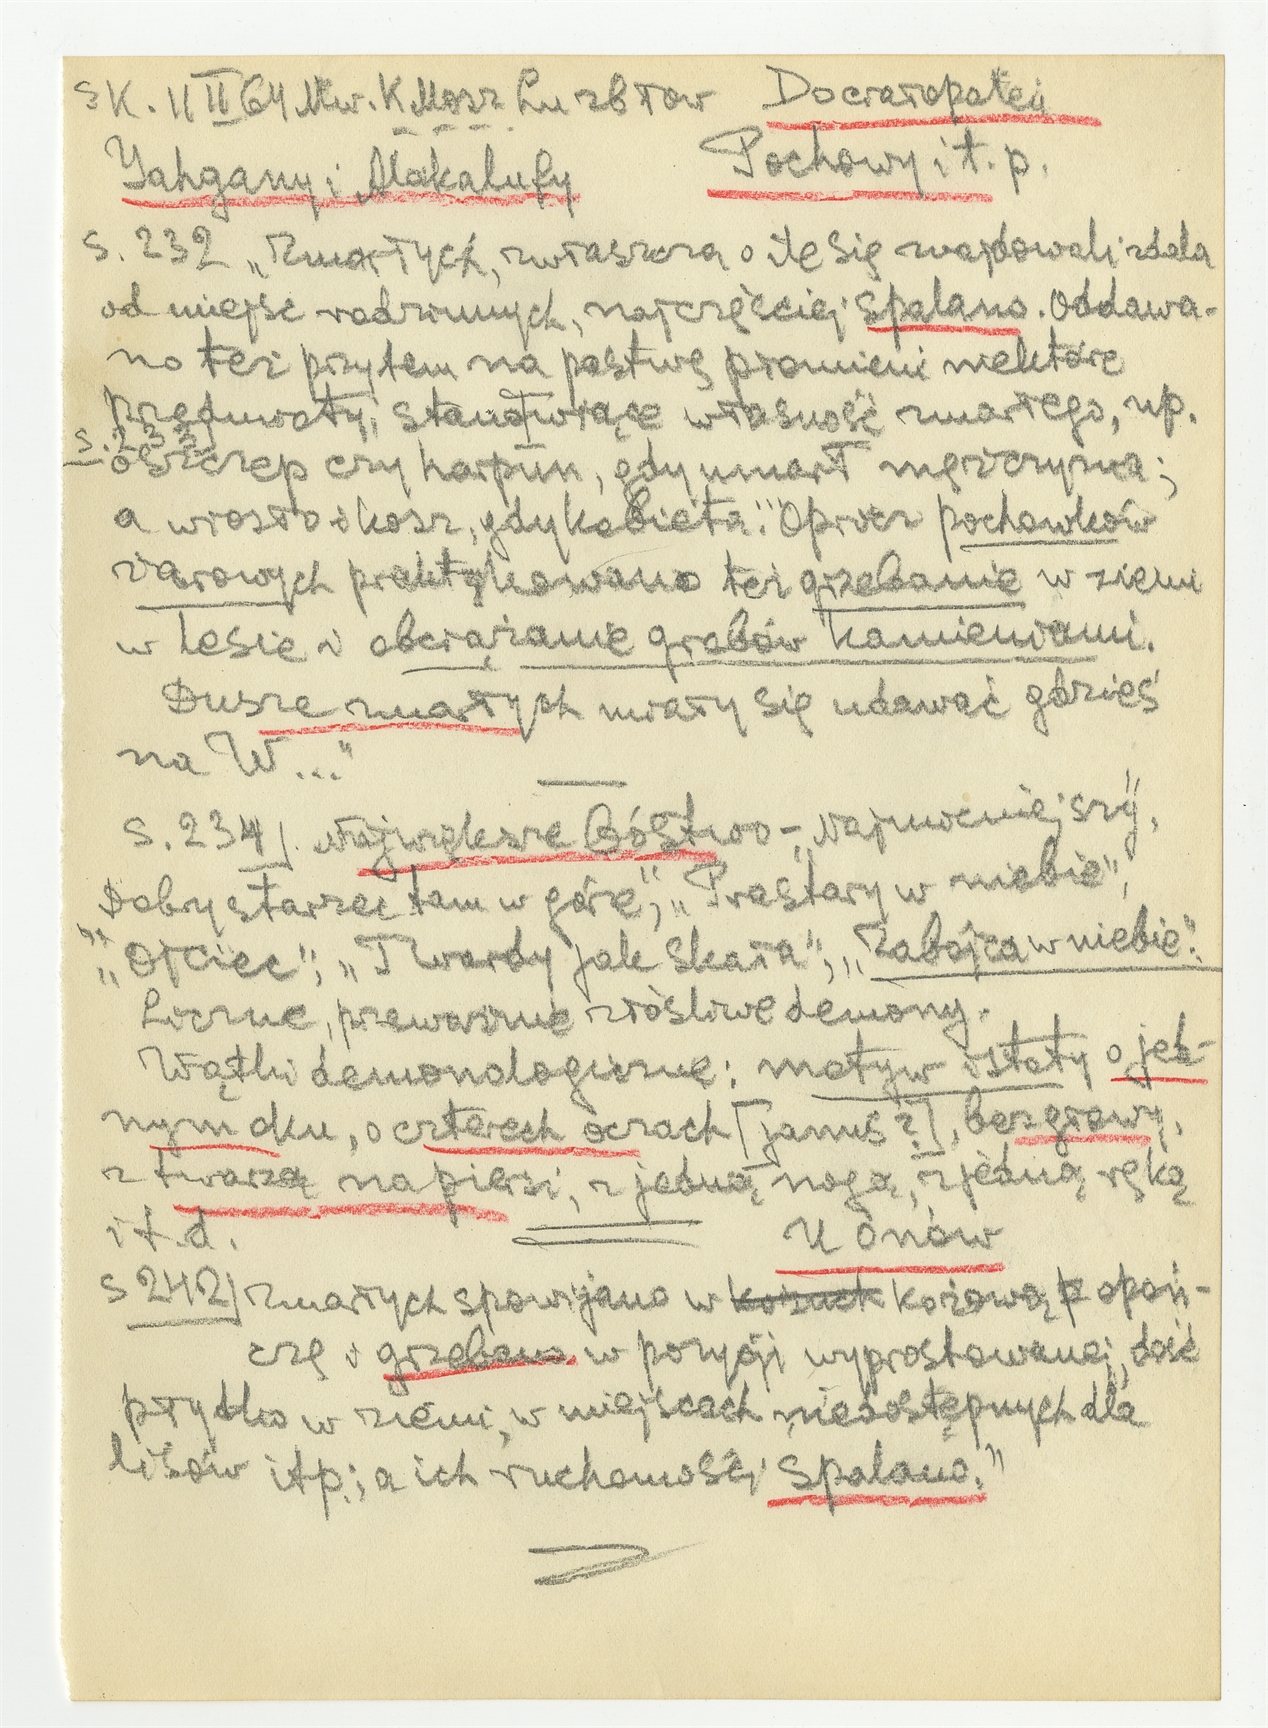 SK. 11 II 64 Mw. K Mosz Lu zb łow Do ciałopaleń
Yahgany i Alakalufy Pochowy i t. p.
S. 232 „Zmarłych, zwłaszcza o ile się znajdowali zdala
od miejsc rodzinnych, najczęściej spalano. Oddawa-
no też przytem na pastwę płomieni niektóre
przedmioty, stanowiące własność zmarłego, np.
s. 233
oszczep czy harpun, gdy umarł mężczyzna;
a wiosło i kosz, gdy kobieta." Oprócz pochówków
żarowych praktykowano też grzebanie w ziemi
w lesie i obciążanie grobów kamieniami.
Dusze zmarłych miały się udawać gdzieś
na W..."
S. 234]. Największe Bóstwo - „Najmocniejszy",
Dobry starzec tam w górze", „Prastary w niebie",
„Ojciec", „Twardy jak Skała", „Zabójca w niebie".
Liczne, przeważnie złośliwe demony.
Wątki demonologiczne: motyw istoty o jed-
nym oku, o czterech oczach [Janus?], bez głowy,
z twarzą na piersi, z jedną nogą, z jedną ręką
i t. d. U Onów
S 242] Zmarłych spowijano w kożuch kożową opoń-
czę i grzebano w pozycji wyprostowanej, dość
płytko w ziemi, w miejscach niedostępnych dla
lisów itp.; a ich ruchomości spalano."